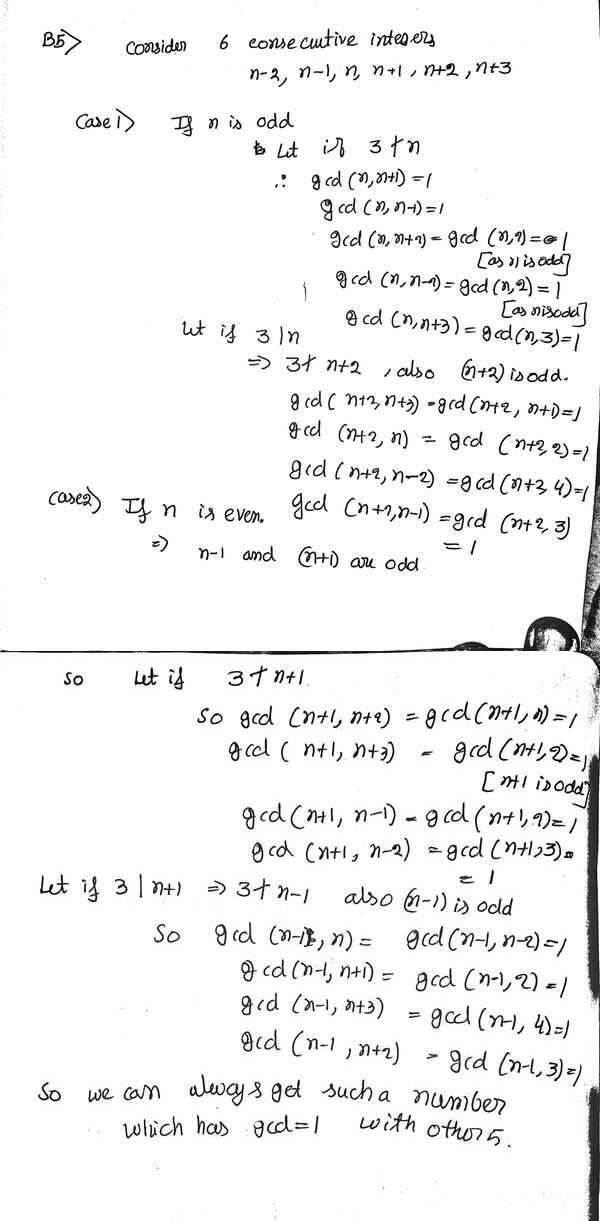 B5> Consider 6 consecutive integers
n-2, n-1, n, n+1, n+2, n+3
Case 1> If n is odd
Let if 3 ∤ n
∴ gcd (n, n+1) = 1
gcd (n, n-1) = 1
gcd (n, n+2) = gcd (n, 2) = 1
[as n is odd]
gcd (n, n-2) = gcd (n, 2) = 1
[as n is odd]
gcd (n, n+3) = gcd (n, 3) = 1
Let if 3 | n
⇒ 3 ∤ n+2, also (n+2) is odd.
gcd ( n+2, n+3) = gcd (n+2, n+1) = 1
gcd (n+2, n) = gcd (n+2, 2) = 1
gcd (n+2, n-2) = gcd (n+2, 4) = 1
gcd (n+2, n-1) = gcd (n+2, 3)
= 1
Case 2) If n is even.
⇒ n-1 and (n+1) are odd
So Let if 3 ∤ n+1
So gcd (n+1, n+2) = gcd (n+1, n) = 1
gcd ( n+1, n+3) = gcd (n+1, 2) = 1
[n+1 is odd]
gcd (n+1, n-1) = gcd (n+1, 2) = 1
gcd (n+1, n-2) = gcd (n+1, 3) =
= 1
Let if 3 | n+1 ⇒ 3 ∤ n-1 also (n-1) is odd
So gcd (n-1, n) = gcd (n-1, n-2) = 1
gcd (n-1, n+1) = gcd (n-1, 2) = 1
gcd (n-1, n+3) = gcd (n-1, 4) = 1
gcd (n-1, n+2) = gcd (n-1, 3) = 1
So we can always get such a number
which has gcd = 1 with other 5.